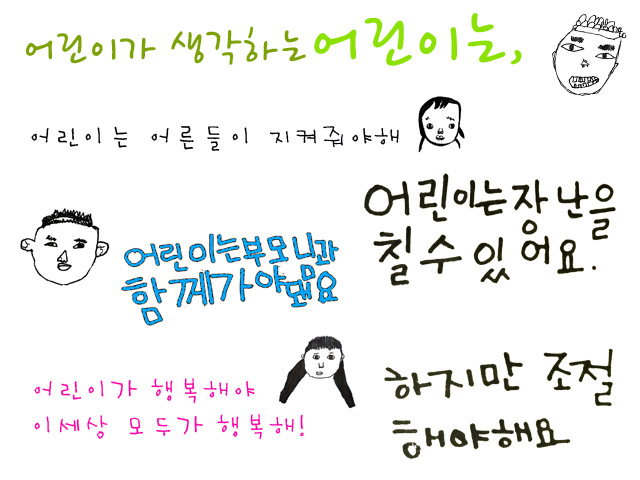 어린이가 생각하는 어린이는,
어린이는 어른들이 지켜줘야해
어린이는 장난을
칠 수 있어요.
어린이는 부모님과
함께가야돼요
하지만 조절
해야해요
어린이가 행복해야
이세상 모두가 행복해!